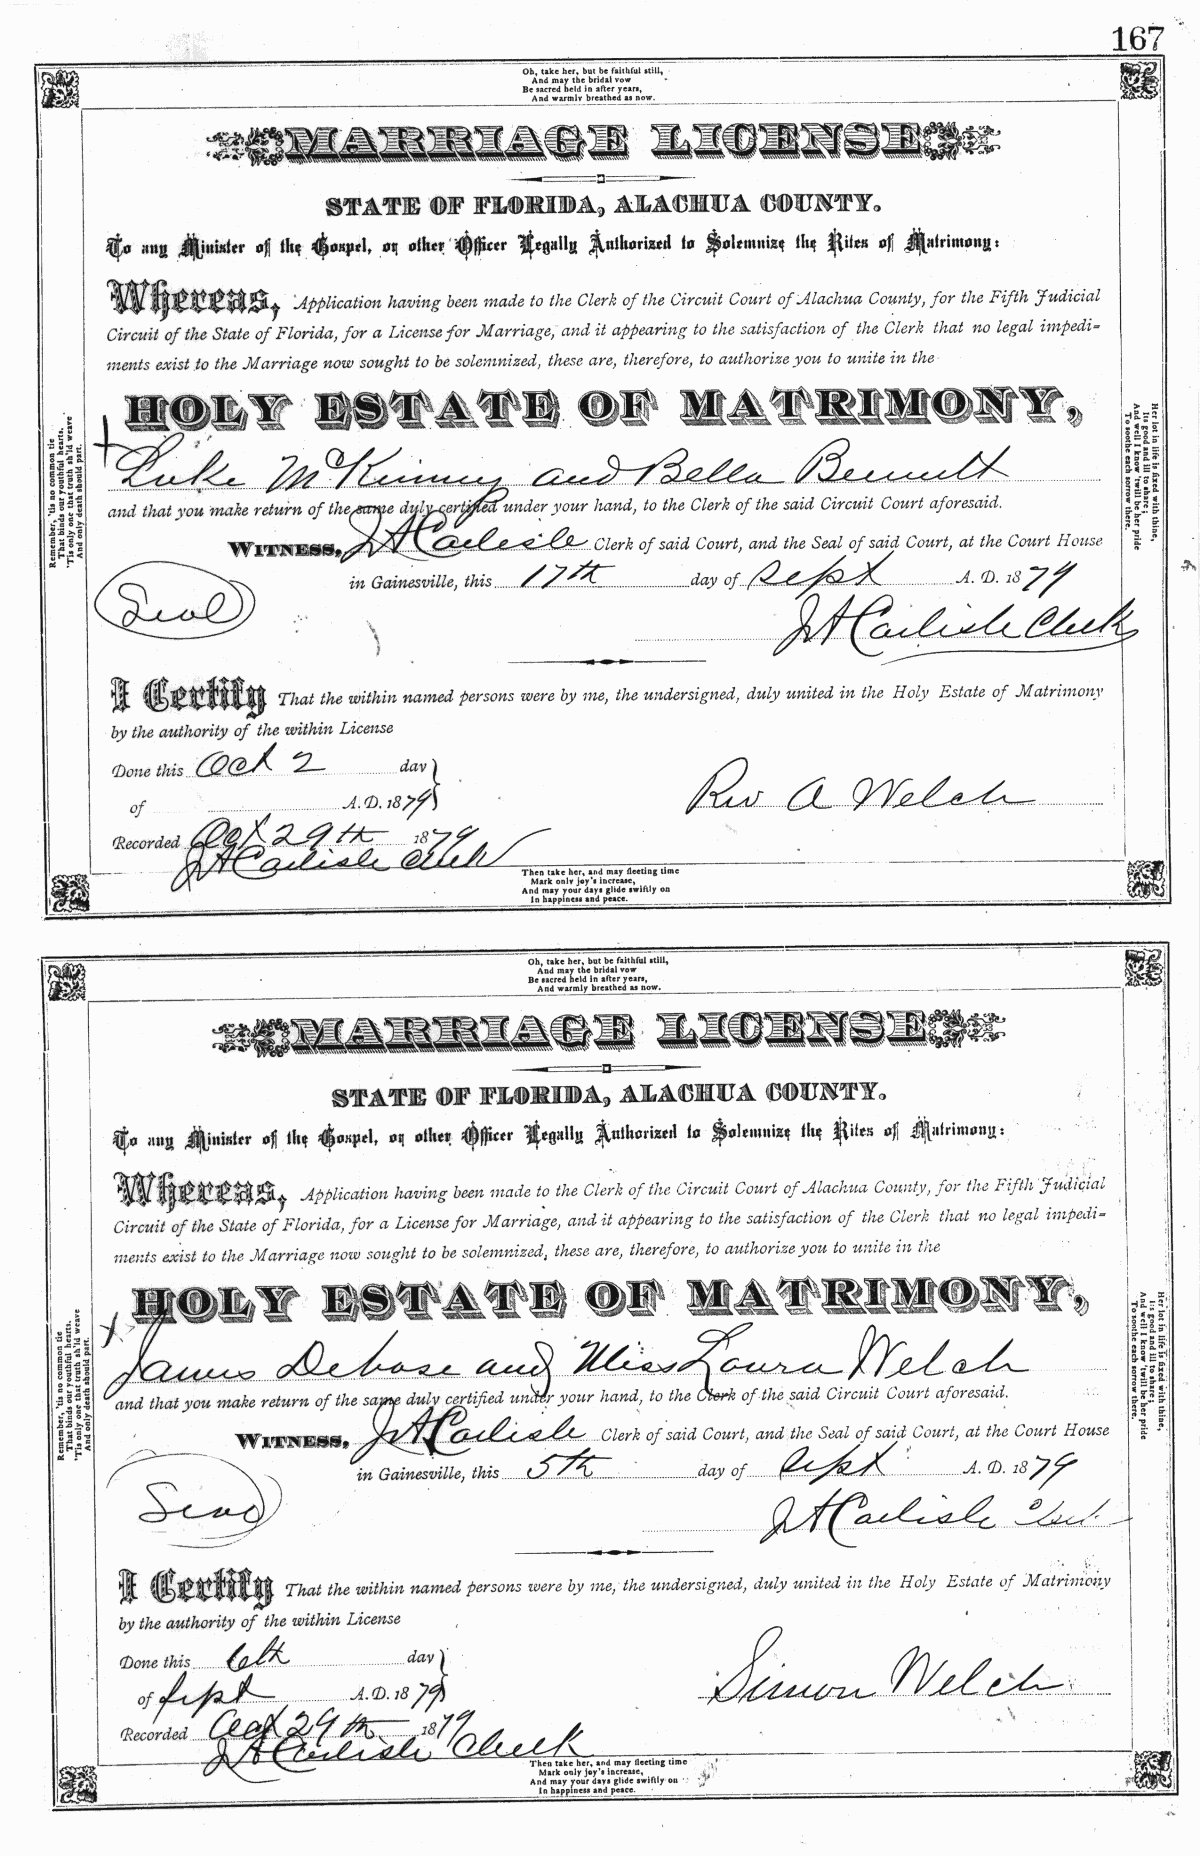 167
Oh, take her, but be faithful still,
And may the bridal vow
Be sacred held in after years,
And warmly breathed as now.
MARRIAGE LICENSE
STATE OF FLORIDA, ALACHUA COUNTY.
To any Minister of the Gospel, or other Officer Legally Authorized to Solemnize the Rites of Matrimony:
Whereas, Application having been made to the Clerk of the Circuit Court of Alachua County, for the Fifth Judicial
Circuit of the State of Florida, for a License for Marriage, and it appearing to the satisfaction of the Clerk that no legal impedi=
ments exist to the Marriage now sought to be solemnized, these are, therefore, to authorize you to unite in the
HOLY ESTATE OF MATRIMONY,
Luke McKinney and Bella Bennett
and that you make return of the same duly certified under your hand, to the Clerk of the said Circuit Court aforesaid.
WITNESS, J A Carlisle Clerk of said Court, and the Seal of said Court, at the Court House
in Gainesville, this 17th day of Sept A. D. 1879
Seal
J A Carlisle Clerk
I Certify That the within named persons were by me, the undersigned, duly united in the Holy Estate of Matrimony
by the authority of the within License
Done this Oct 2 day
of A. D. 1879
Rev A Welch
Recorded Oct 29th 1879
J A Carlisle Clerk
Then take her, and may fleeting time
Mark only joy's increase,
And may your days glide swiftly on
In happiness and peace.
Remember, 'tis no common tie
That binds our youthful hearts,
'Tis only one that truth sh'ld weave
And only death should part.
Her lot in life is fixed with thine,
Its good and ill to share;
And well I know 'twill be her pride
To soothe each sorrow there.
Oh, take her, but be faithful still,
And may the bridal vow
Be sacred held in after years,
And warmly breathed as now.
MARRIAGE LICENSE
STATE OF FLORIDA, ALACHUA COUNTY.
To any Minister of the Gospel, or other Officer Legally Authorized to Solemnize the Rites of Matrimony:
Whereas, Application having been made to the Clerk of the Circuit Court of Alachua County, for the Fifth Judicial
Circuit of the State of Florida, for a License for Marriage, and it appearing to the satisfaction of the Clerk that no legal impedi=
ments exist to the Marriage now sought to be solemnized, these are, therefore, to authorize you to unite in the
HOLY ESTATE OF MATRIMONY,
James Debose and Miss Laura Welch
and that you make return of the same duly certified under your hand, to the Clerk of the said Circuit Court aforesaid.
WITNESS, J A Carlisle Clerk of said Court, and the Seal of said Court, at the Court House
in Gainesville, this 5th day of Sept A. D. 1879
Seal
J A Carlisle Clerk
I Certify That the within named persons were by me, the undersigned, duly united in the Holy Estate of Matrimony
by the authority of the within License
Done this 6th day
of Sept A. D. 1879
Simon Welch
Recorded Oct 29th 1879
J A Carlisle Clerk
Then take her, and may fleeting time
Mark only joy's increase,
And may your days glide swiftly on
In happiness and peace.
Remember, 'tis no common tie
That binds our youthful hearts,
'Tis only one that truth sh'ld weave
And only death should part.
Her lot in life is fixed with thine,
Its good and ill to share;
And well I know 'twill be her pride
To soothe each sorrow there.